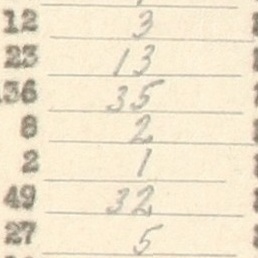 12 3
23 13
36 35
8 2
2 1
49 32
27 5